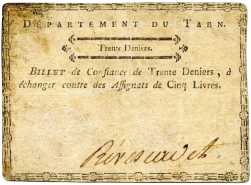 DÉPARTEMENT DU TARN.
Trente Deniers.
BILLET de Confiance de Trente Deniers, à
échanger contre des Assignats de Cinq Livres.